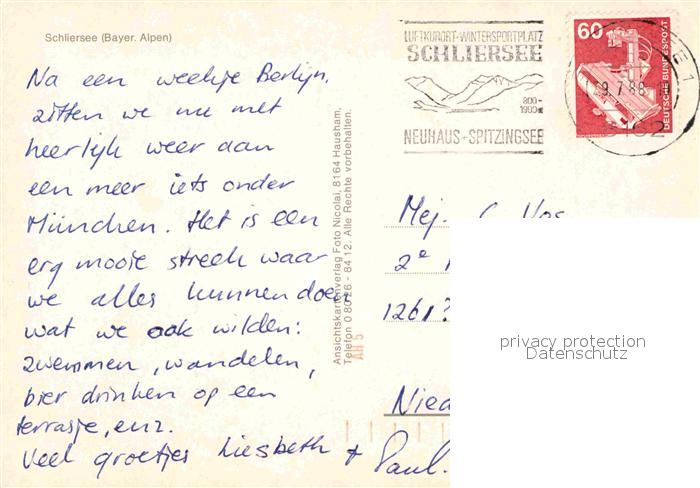 Schliersee (Bayer. Alpen)
LUFTKURORT-WINTERSPORTPLATZ
SCHLIERSEE
800-
NEUHAUS+SPITZINGSEE
60
DEUTSCHE BUNDESPOST
Na een weekje Berlijn,
zitten we nu met
heerlijk weer aan
een meer iets onder
München. Het is een
erg mooie streek waar
we alles kunnen doen
wat we ook wilden:
zwemmen, wandelen,
bier drinken op een
terrasje, enz.
Veel groetjes Liesbeth + Paul.
Ansichtskartenverlag Foto Nicolai, 8164 Hausham,
Telefon 0 80 26 - 84 12. Alle Rechte vorbehalten.
AH 5
Mej. C. Vos
2e
1261
Nied
privacy protection
Datenschutz